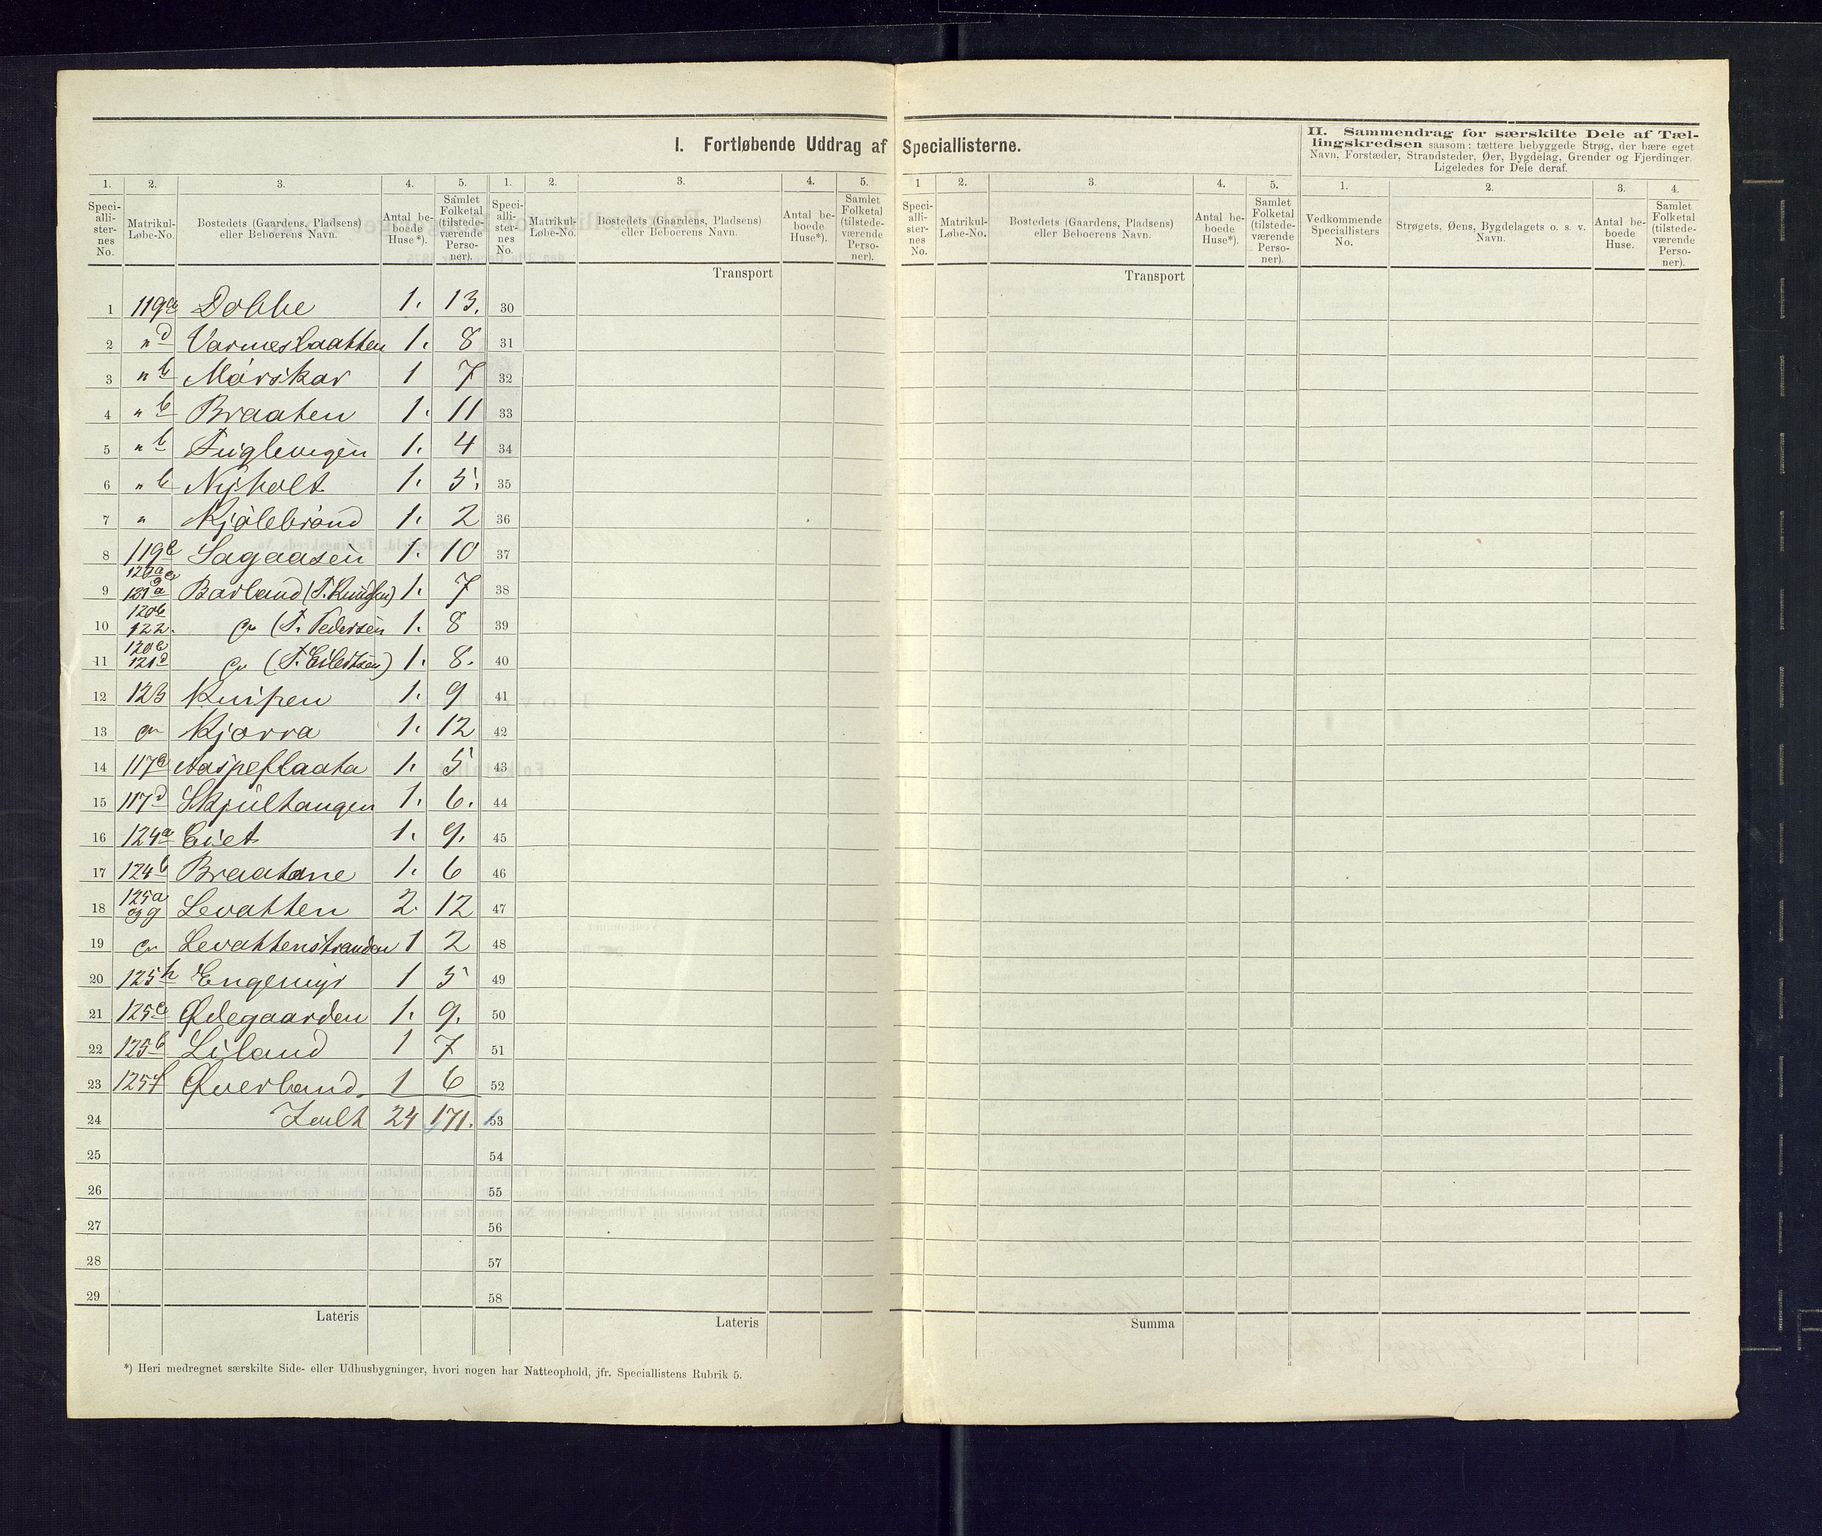 I. Fortløbende Uddrag af Speciallisterne.
II. Sammendrag for særskilte Dele af Tællingskredsen saasom: tættere bebyggede Strøg, der bære eget
Navn, Forstæder, Strandsteder, Øer, Bygdelag, Grender og Fjerdinger.
Ligeledes for Dele deraf.
1. 2. 3. 4. 5. 1. 2. 3. 4. 5. 1 2. 3. 4. 5. 1. 2. 3. 4.
Speciallisternes No. Matrikul-Løbe-No. Bostedets (Gaardens, Pladsens) eller Beboerens Navn. Antal beboede Huse*). Samlet Folketal (tilstedeværende Personer).
Speciallisternes No. Matrikul-Løbe-No. Bostedets (Gaardens, Pladsens) eller Beboerens Navn. Antal beboede Huse*). Samlet Folketal (tilstedeværende Personer).
Speciallisternes No. Matrikul-Løbe-No. Bostedets (Gaardens, Pladsens) eller Beboerens Navn. Antal beboede Huse*). Samlet Folketal (tilstedeværende Personer).
Vedkommende Speciallisters No. Strøgets, Øens, Bygdelagets o. s. v. Navn. Antal beboede Huse. Samlet Folketal (tilstedeværende Personer).
Transport Transport
1 119a Dobbe 1. 13. 30
2 " d Varmeslaatten 1. 8 31
3 " b Mörskar 1 7 32
4 " b Braaten 1. 11 33
5 " b Fuglevigen 1. 4 34
6 " b Nyholt 1. 5. 35
7 " Kjölebrönd 1. 2 36
8 119c Sagaasen 1. 10 37
9 121a Barland (T. Knudsen) 1. 7 38
10 120b 122. (T. Pedersen 1. 8 39
11 120c 121d (T. Eilertsen) 1. 8. 40
12 123 Knipen 1. 9 41
13 Kjorra 1. 12 42
14 117a Aaspeflaata 1. 5 43
15 117d Skjultangen 1. 6. 44
16 124a Eiet 1. 9. 45
17 124b Braatane 1. 6 46
18 125a og g Levatten 2. 12 47
19 Levattenstranden 1 2 48
20 125h Engemyr 1 5 49
21 125c Ødegaarden 1. 9. 50
22 125b Liland 1 7 51
23 125f Øverland 1 6 52
24 Ialt 24 171. 53
25 54
26 55
27 56
28 57
29 58
Lateris Lateris Summa
*) Heri medregnet særskilte Side- eller Udhusbygninger, hvori nogen har Natteophold, jfr. Speciallistens Rubrik 5.